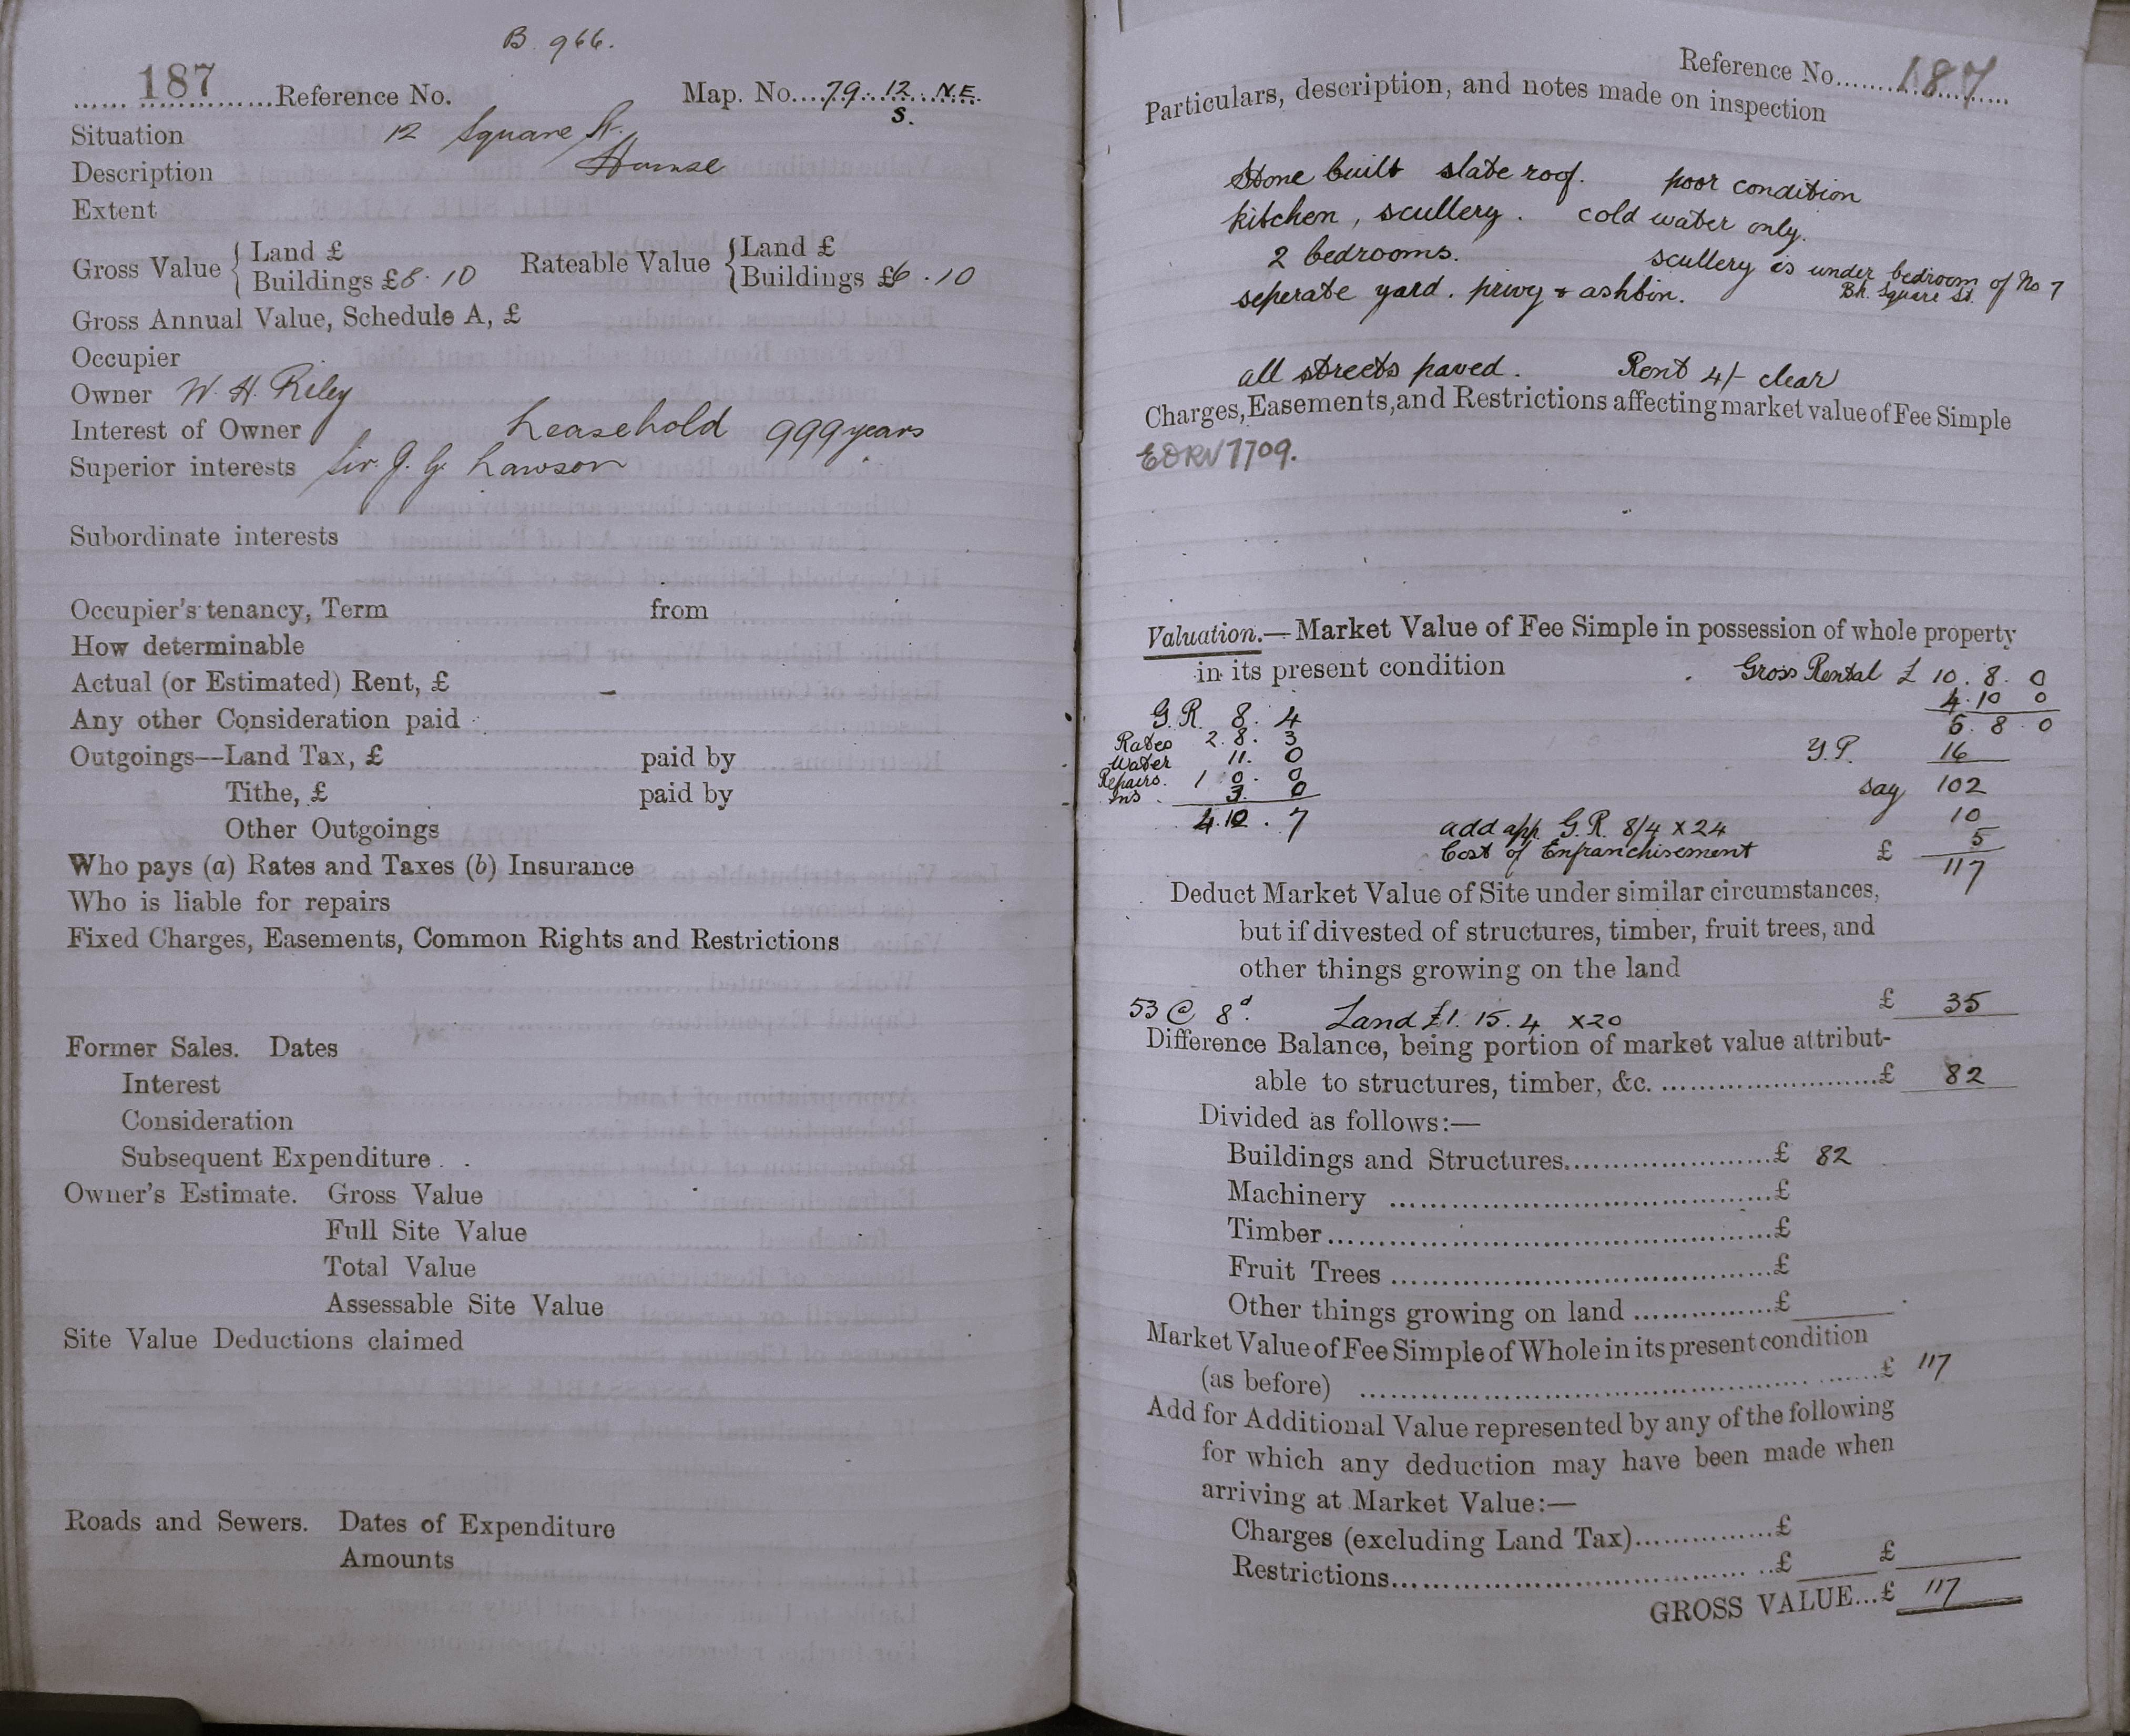 B. 966.
187 Reference No. Map. No. 79. 12. N.E.
S.
Situation 12 Square St.
Description House
Extent
Gross Value { Land £
Buildings £8. 10
Rateable Value { Land £
Buildings £6. 10
Gross Annual Value, Schedule A, £
Occupier
Owner W. H. Riley
Interest of Owner Leasehold 999 years
Superior interests Sir. J. G. Lawson
Subordinate interests
Occupier's tenancy, Term from
How determinable
Actual (or Estimated) Rent, £ -
Any other Consideration paid
Outgoings—Land Tax, £ paid by
Tithe, £ paid by
Other Outgoings
Who pays (a) Rates and Taxes (b) Insurance
Who is liable for repairs
Fixed Charges, Easements, Common Rights and Restrictions
Former Sales. Dates
Interest
Consideration
Subsequent Expenditure
Owner's Estimate. Gross Value
Full Site Value
Total Value
Assessable Site Value
Site Value Deductions claimed
Roads and Sewers. Dates of Expenditure
Amounts
Reference No. 187
Particulars, description, and notes made on inspection
Stone built slate roof. poor condition
kitchen, scullery. cold water only.
2 bedrooms. scullery is under bedroom of No 7
Bk. Square St.
seperate yard. privy & ashbin.
all streets paved. Rent 4/- clear
Charges, Easements, and Restrictions affecting market value of Fee Simple
EDRV 7709.
Valuation.—Market Value of Fee Simple in possession of whole property
in its present condition Gross Rental £ 10. 8. 0
4. 10 0
G.R. 8. 4 5. 8. 0
Rates 2. 8. 3 Y.P. 16
Water 11. 0
Repairs. 1. 0. 0 say 102
Ins. 3. 0
4. 10. 7 add app. G.R. 8/4 x 24 10
Cost of Enfranchisement 5
£ 117
Deduct Market Value of Site under similar circumstances,
but if divested of structures, timber, fruit trees, and
other things growing on the land
53 @ 8d. Land £1. 15. 4 x20 £ 35
Difference Balance, being portion of market value attribut-
able to structures, timber, &c. £ 82
Divided as follows:—
Buildings and Structures £ 82
Machinery £
Timber £
Fruit Trees £
Other things growing on land £
Market Value of Fee Simple of Whole in its present condition
(as before) £ 117
Add for Additional Value represented by any of the following
for which any deduction may have been made when
arriving at Market Value:—
Charges (excluding Land Tax) £
Restrictions £ £
GROSS VALUE...£ 117